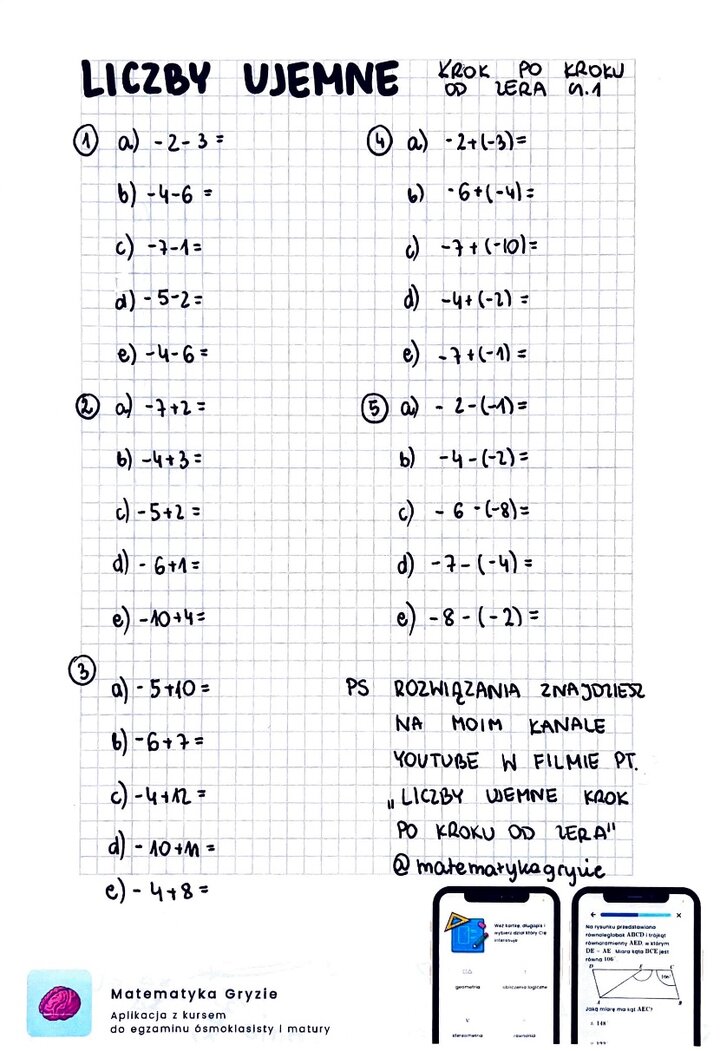 LICZBY UJEMNE
KROK PO KROKU
OD ZERA cz.1
① a) -2-3=
b) -4-6 =
c) -7-1=
d) -5-2=
e) -4-6=
② a) -7+2=
b) -4+3=
c) -5+2=
d) -6+1=
e) -10+4=
③
a) -5+10=
b) -6+7=
c) -4+12=
d) -10+11=
e) -4+8=
④ a) -2+(-3)=
b) -6+(-4)=
c) -7+(-10)=
d) -4+(-2) =
e) -7+(-1) =
⑤ a) -2-(-1)=
b) -4-(-2)=
c) -6-(-8)=
d) -7-(-4)=
e) -8-(-2)=
PS ROZWIĄZANIA ZNAJDZIESZ
NA MOIM KANALE
YOUTUBE W FILMIE PT.
„LICZBY UJEMNE KROK
PO KROKU OD ZERA"
@matematykagryzie
Matematyka Gryzie
Aplikacja z kursem
do egzaminu ósmoklasisty i matury
Weź kartkę, długopis i
wybierz dział który Cię
interesuje
geometria
obliczenia logiczne
stereometria
równania
Na rysunku przedstawiono
równoległobok ABCD i trójkąt
równoramienny AED, w którym
DE = AE. Miara kąta DCE jest
równa 106°
D E C
106°
A B
Jaką miarę ma kąt AEC?
A. 148